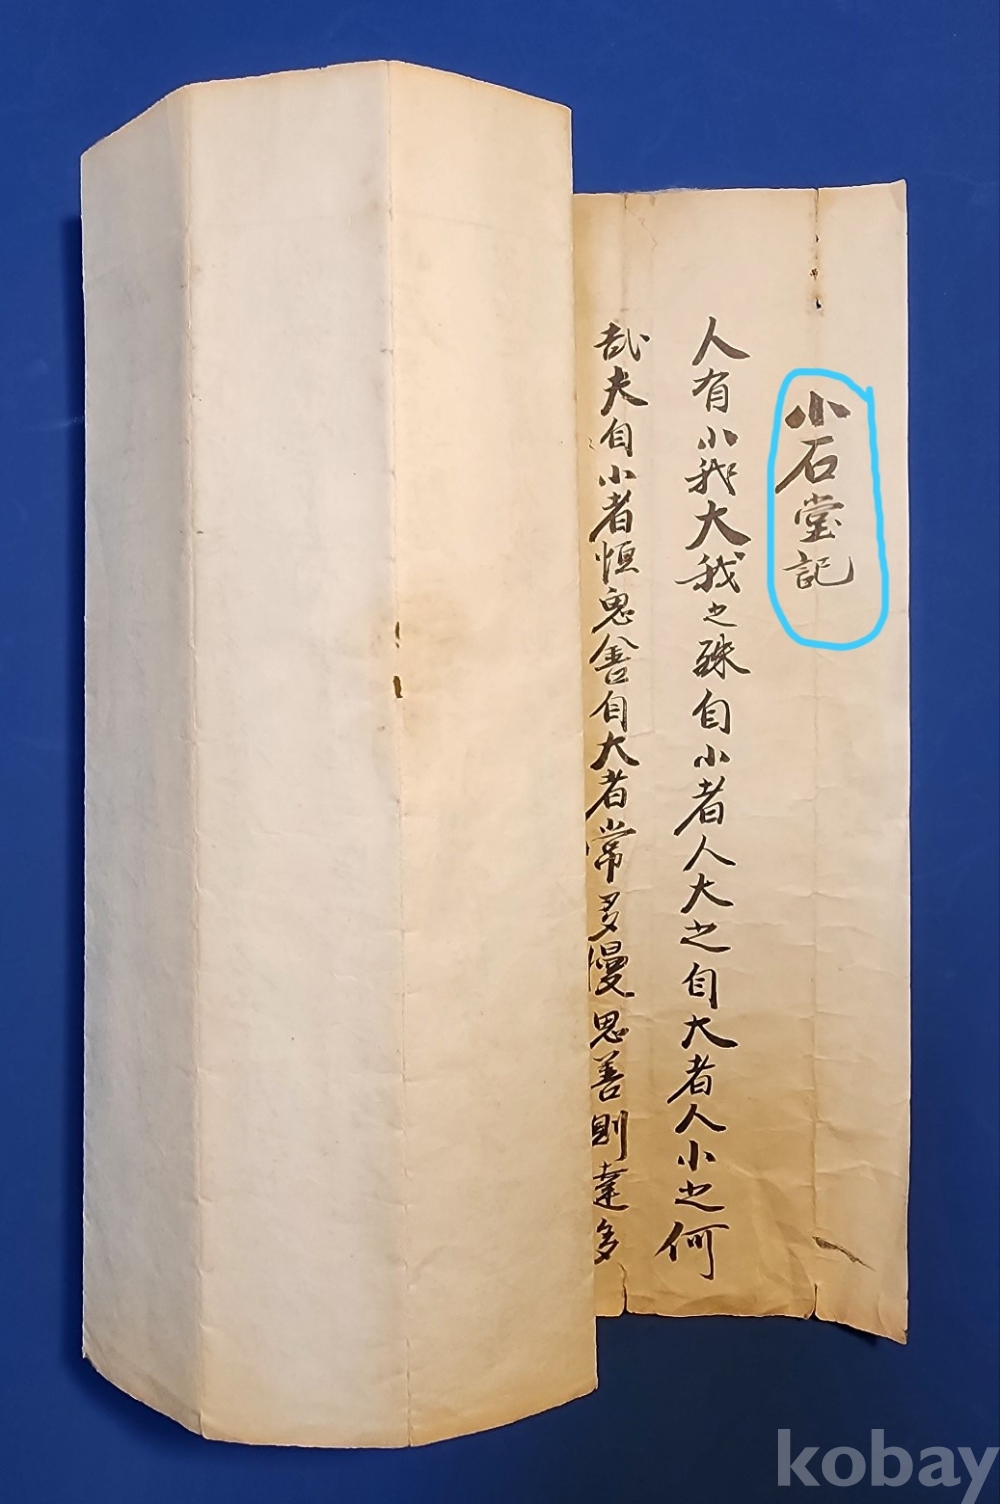 小石堂記
人有小我大我之殊自小者人大之自大者人小之何
哉夫自小者恒鬼舍自大者常多慢思善則達多
kobay